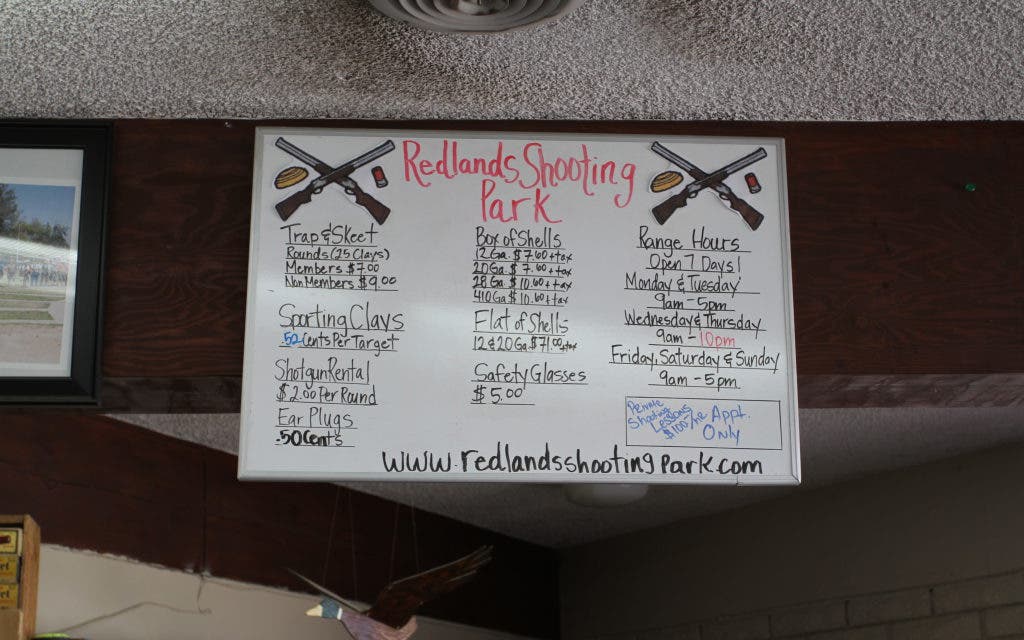 Redlands Shooting
Park
Trap & Skeet
Rounds (25 Clays)
Members $7.00
Non Members $9.00
Sporting Clays
.50 Cents Per Target
Shotgun Rental
$2.00 Per Round
Ear Plugs
.50 Cents
Box of Shells
12 Ga. $7.60 + tax
20 Ga $7.60 + tax
28 Ga $10.60 + tax
410 Ga $10.60 + tax
Flat of Shells
12 & 20 Ga. $71.00 + tax
Safety Glasses
$5.00
Range Hours
Open 7 Days!
Monday & Tuesday
9am - 5pm
Wednesday & Thursday
9am - 10pm
Friday, Saturday & Sunday
9am - 5pm
Private
Shooting
Lessons
$100/HR
Appt.
Only
www.redlandsshootingpark.com